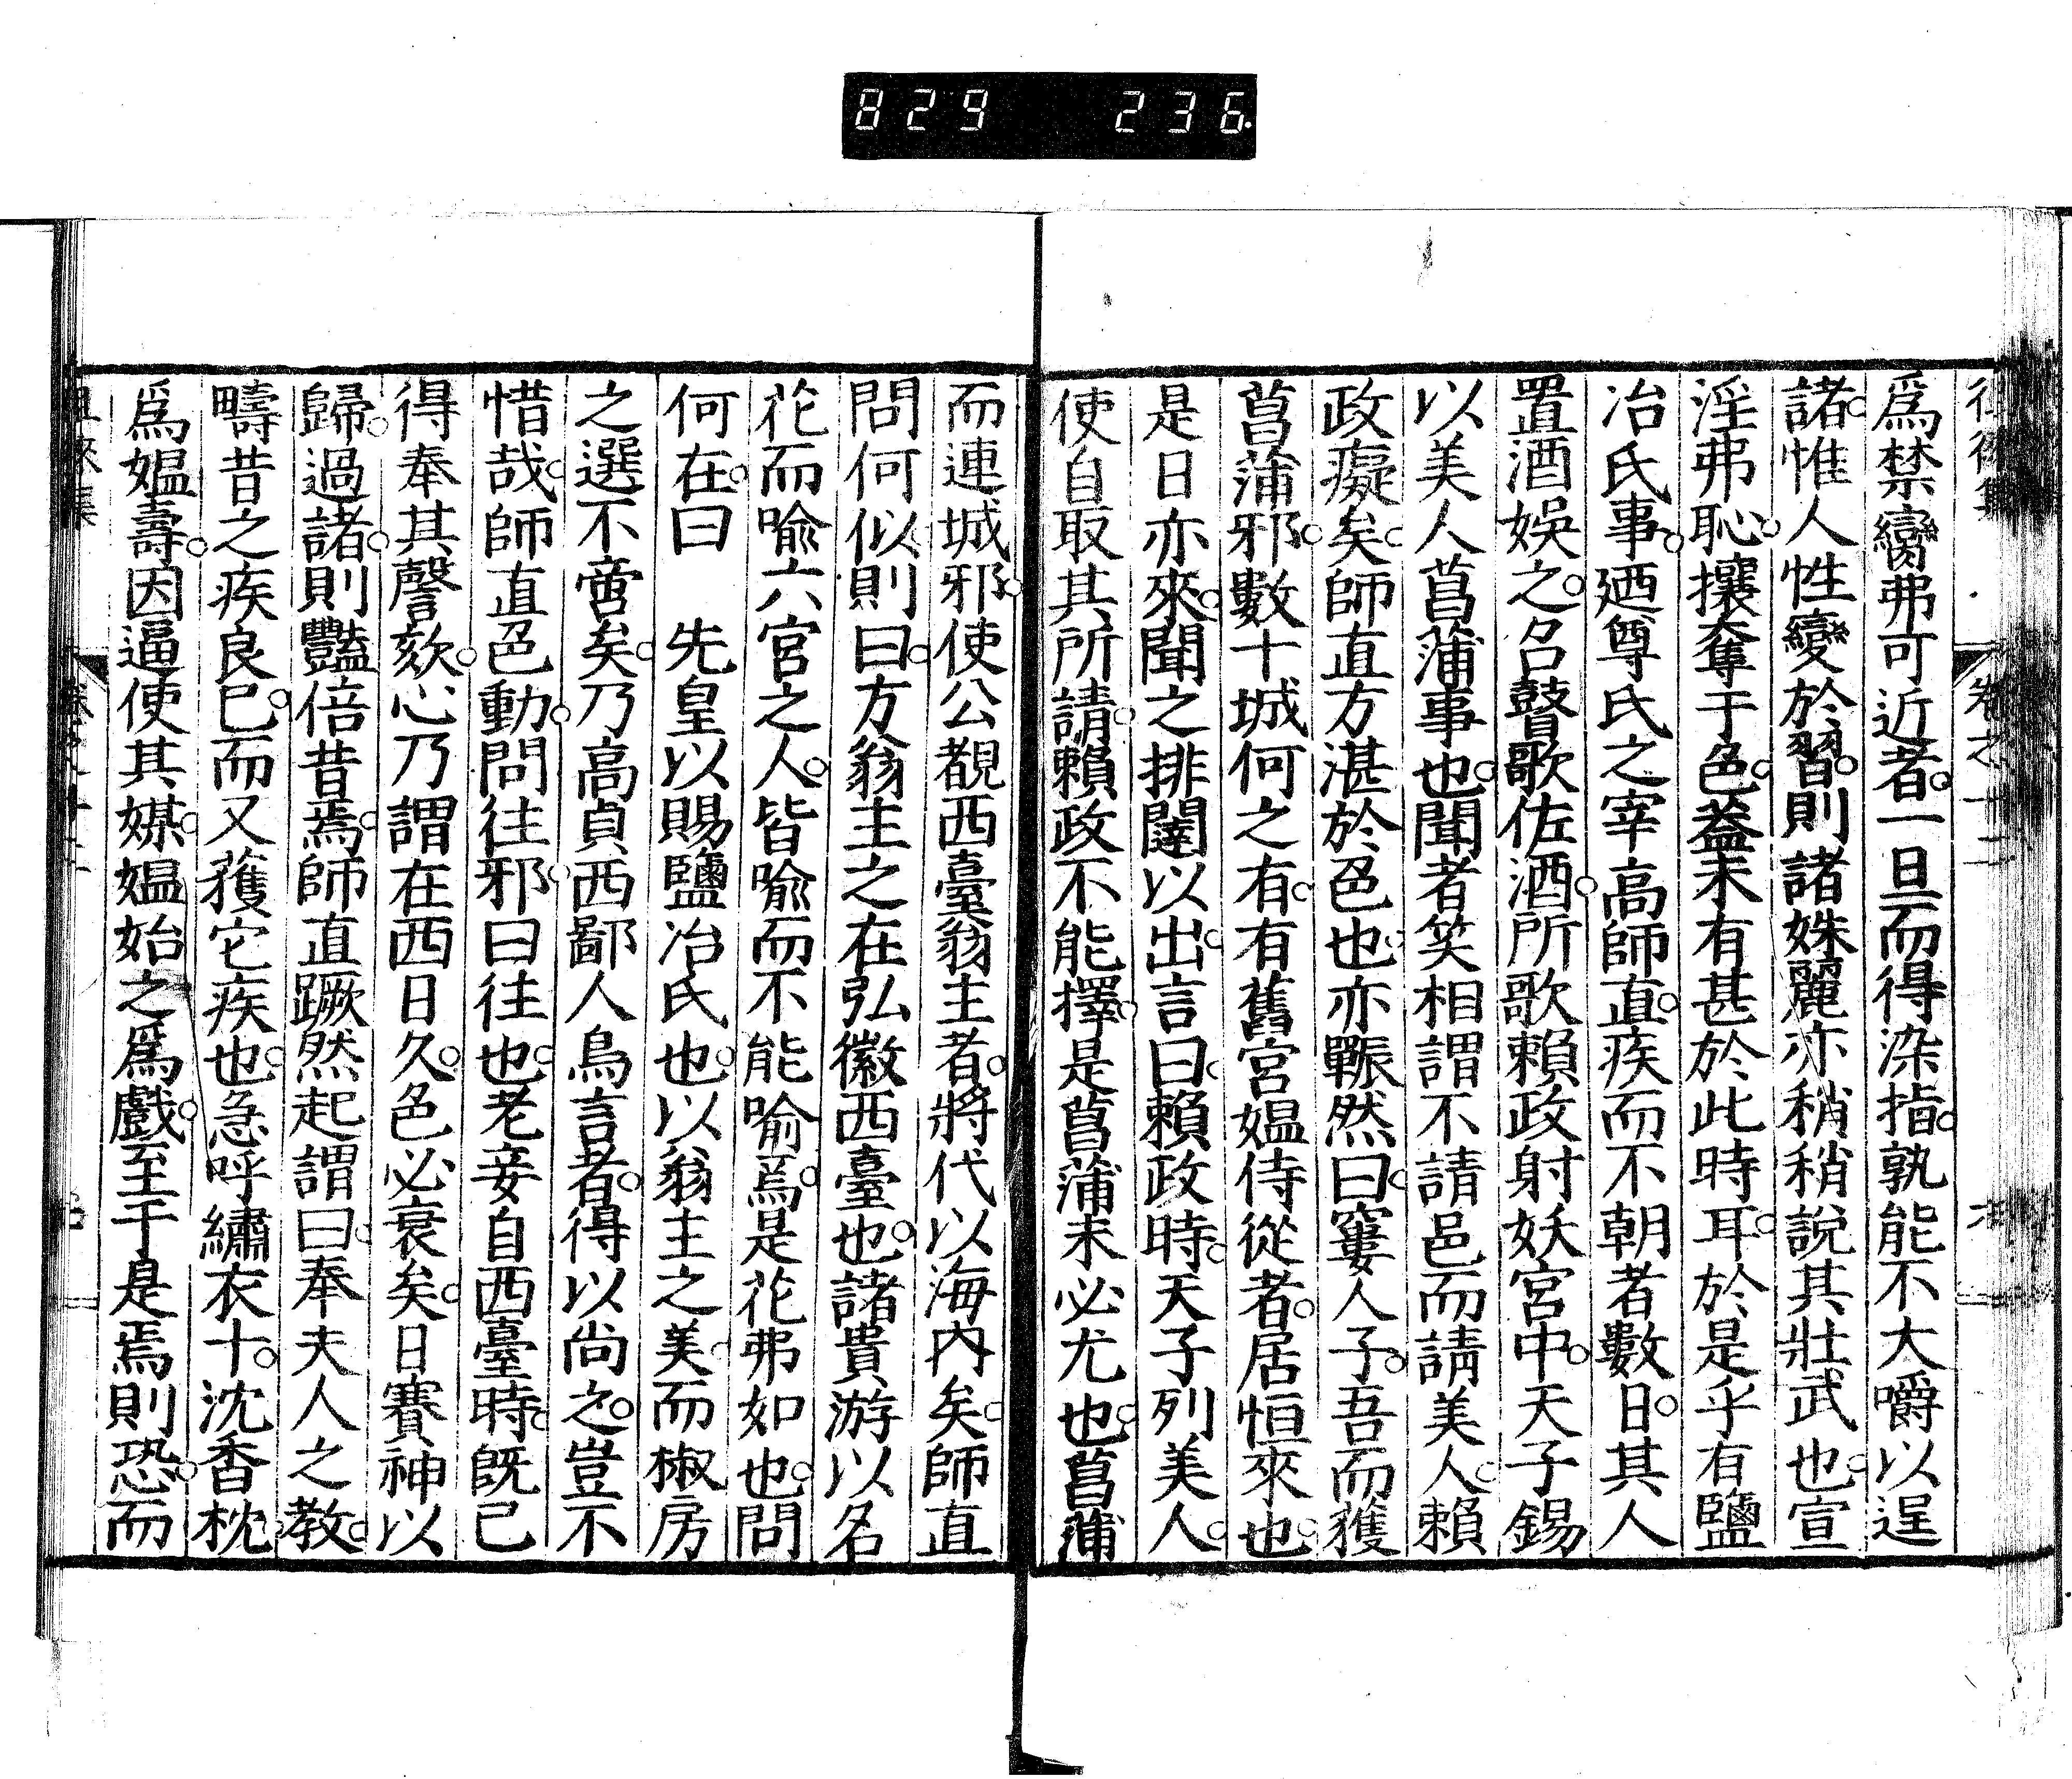 829 236
爲禁臠弗可近者一旦而得染指孰能不大嚼以逞
諸惟人性變於習則諸姝麗亦稍稍說其壯武也宣
淫弗恥攘奪于色蓋未有甚於此時耳於是乎有鹽
冶氏事廼尊氏之宰高師直疾而不朝者數日其人
置酒娛之召瞽歌佐酒所歌賴政射妖宮中天子錫
以美人菖蒲事也聞者笑相謂不請邑而請美人賴
政癡矣師直方湛於色也亦囅然曰窶人子吾而獲
菖蒲邪數十城何之有有舊宮媼侍從者居恒來也
是日亦來聞之排闥以出言曰賴政時天子列美人
使自取其所請賴政不能擇是菖蒲未必尤也菖蒲
而連城邪使公覩西臺翁主者將代以海內矣師直
問何似則曰方翁主之在弘徽西臺也諸貴游以名
花而喩六宮之人皆喩而不能喻焉是花弗如也問
何在曰 先皇以賜鹽冶氏也以翁主之美而椒房
之選不啻矣乃高貞西鄙人鳥言者得以尚之豈不
惜哉師直色動問往邪曰往也老妾自西臺時旣已
得奉其謦欬心乃謂在西日久色必衰矣日賽神以
歸過諸則豔倍昔焉師直蹶然起謂曰奉夫人之教
疇昔之疾良已而又獲它疾也急呼繡衣十沈香枕
爲媼壽因逼使其媒媼始之爲戲至于是焉則恐而